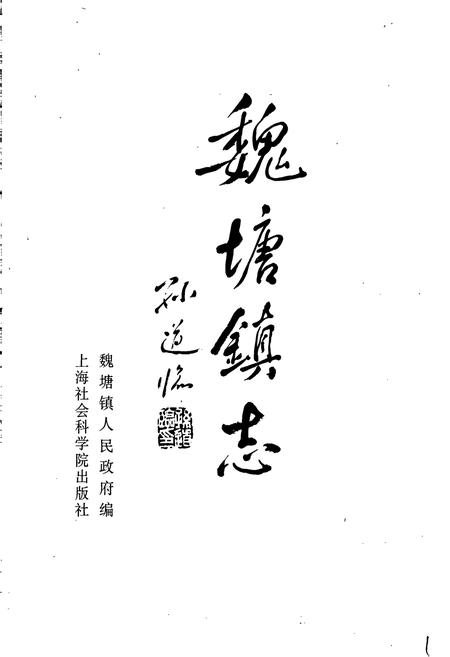 魏塘鎮志
孙道临
魏塘镇人民政府编
上海社会科学院出版社